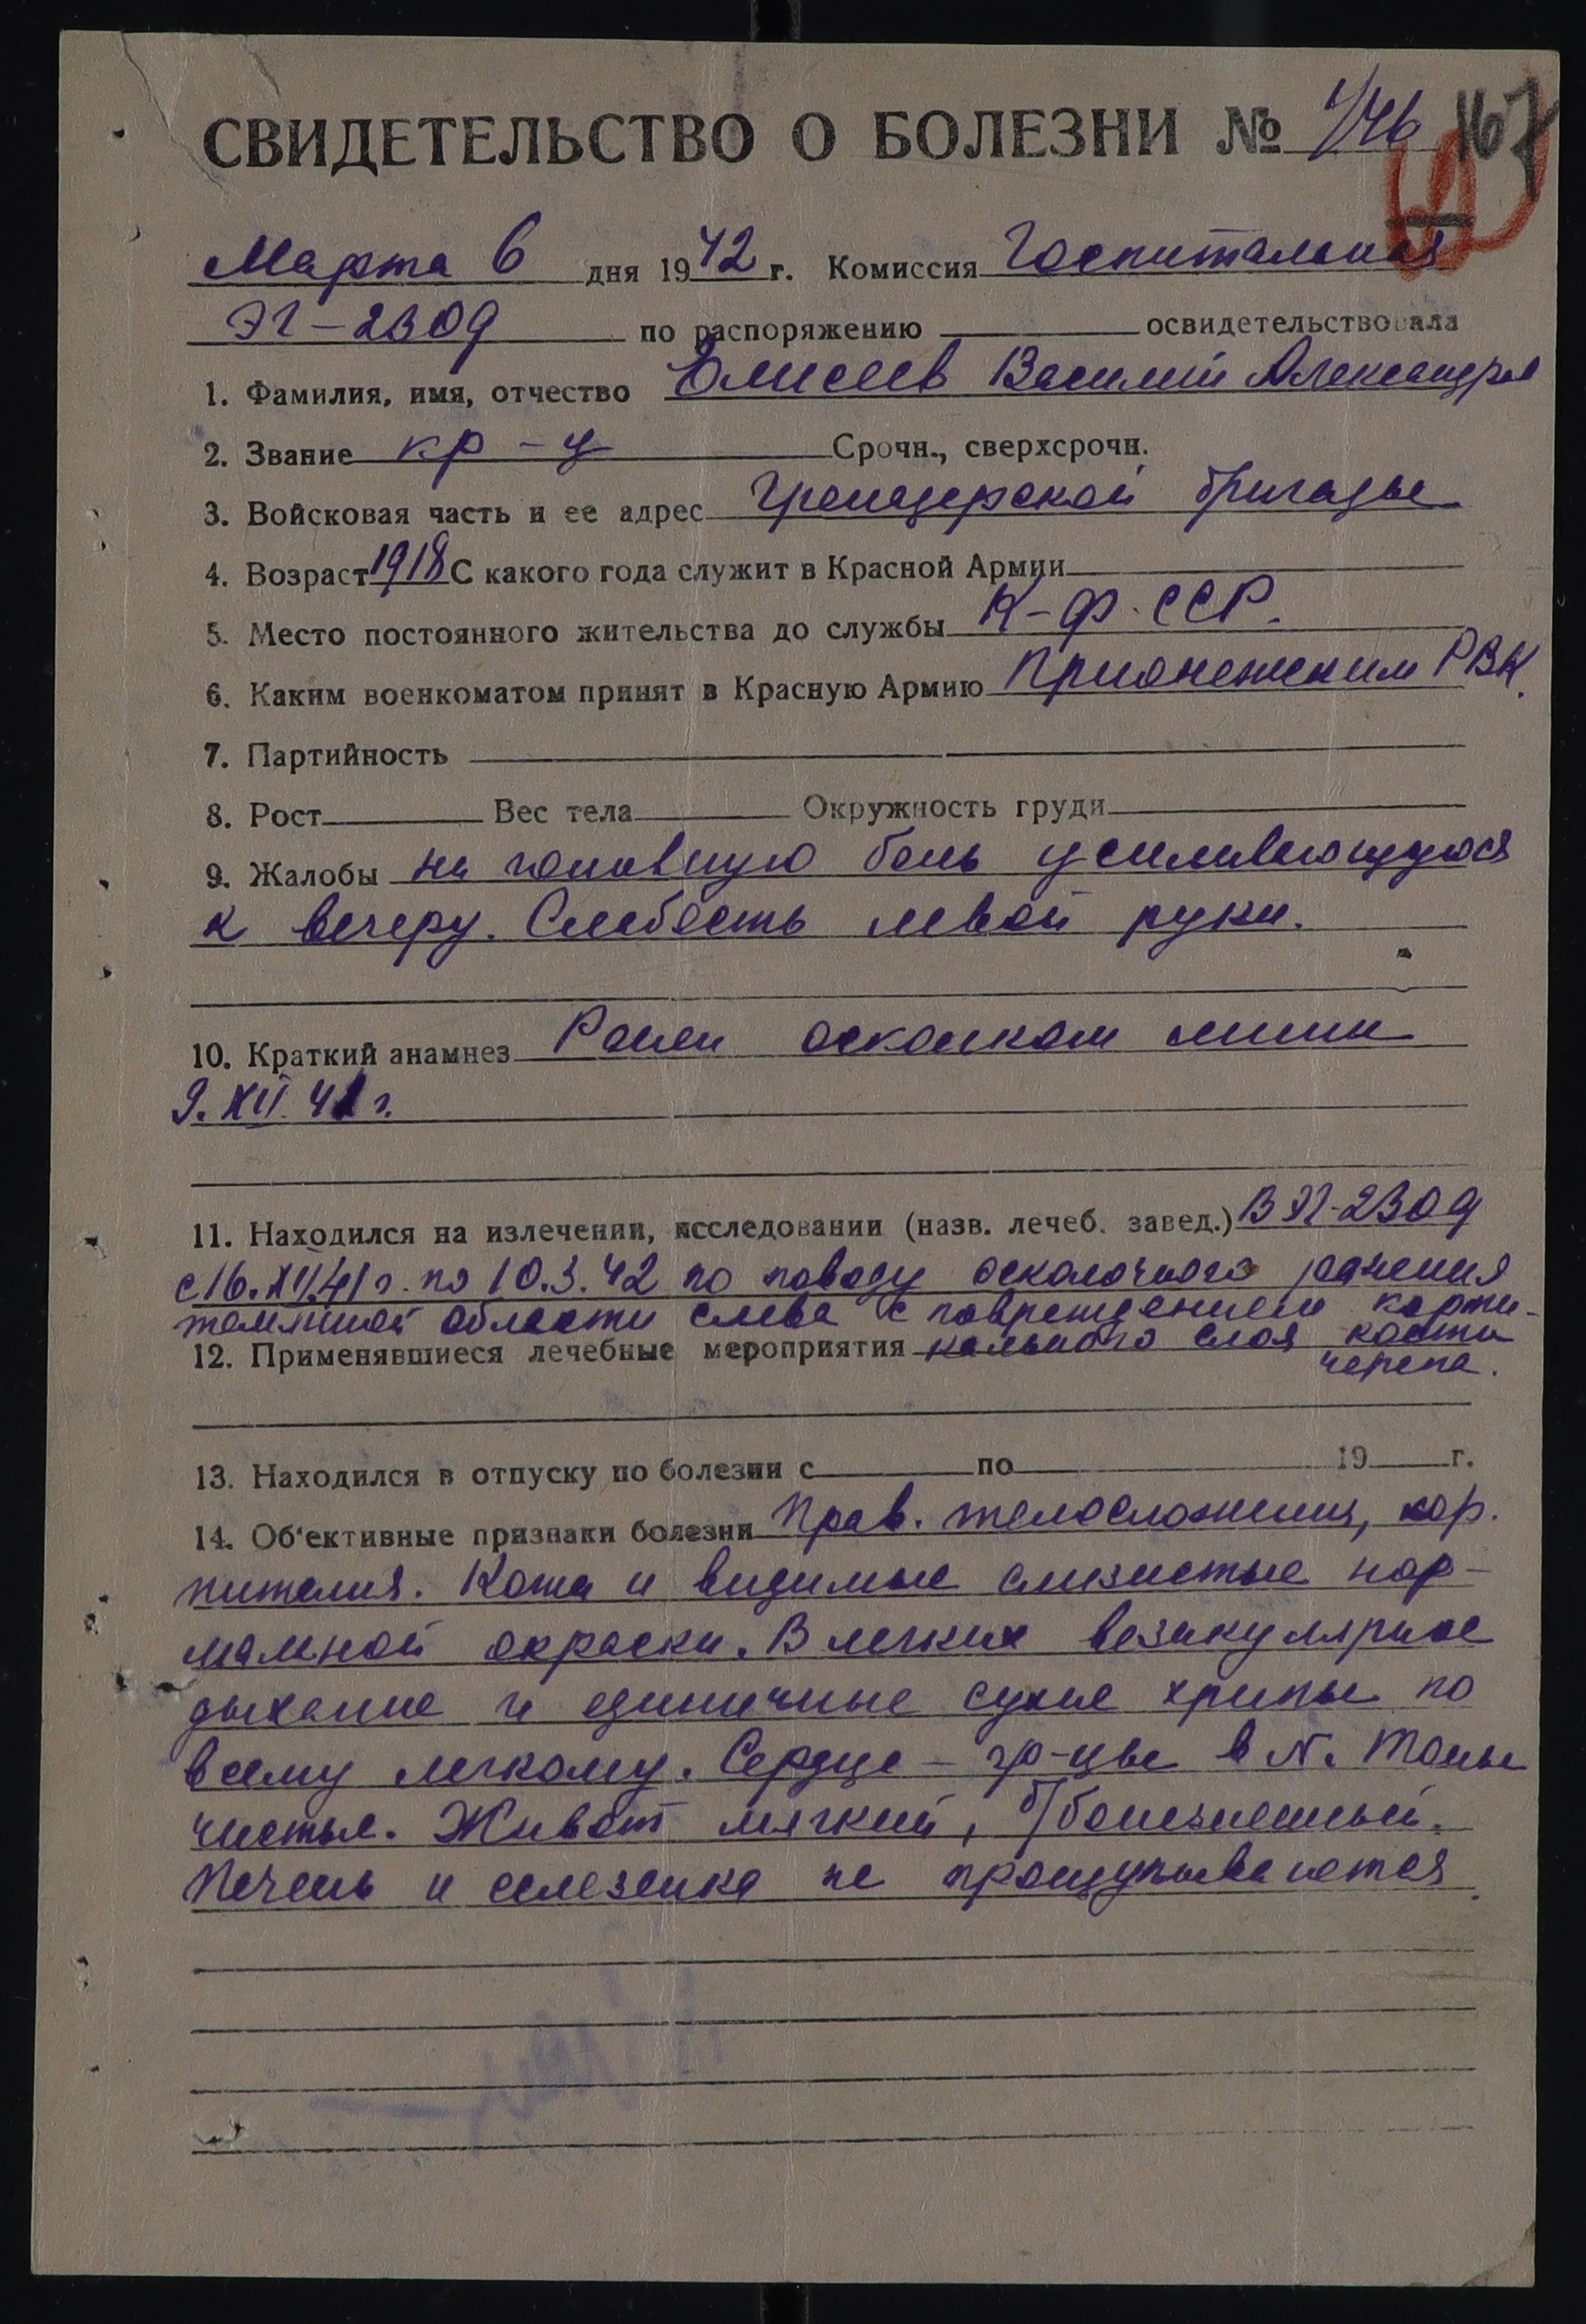 СВИДЕТЕЛЬСТВО О БОЛЕЗНИ № 1/46 167
Марта 6 дня 1942 г. Комиссия Госпитальная
ЭГ-2309 по распоряжению освидетельствовала
1. Фамилия, имя, отчество Елисеев Василий Александров
2. Звание кр-ц Срочн., сверхсрочн.
3. Войсковая часть и ее адрес Гренадерской бригады
4. Возраст 1918 С какого года служит в Красной Армии
5. Место постоянного жительства до службы К-Ф.ССР.
6. Каким военкоматом принят в Красную Армию Прионежским РВК.
7. Партийность
8. Рост Вес тела Окружность груди
9. Жалобы на головную боль усиливающуюся
к вечеру. Слабость левой руки.
10. Краткий анамнез Ранен осколком мины
9.XII.41 г.
11. Находился на излечении, исследовании (назв. лечеб. завед.) В ЭГ-2309
с 16.XII.41 г. по 10.3.42 по поводу осколочного ранения
теменной области слева с повреждением корти-
12. Применявшиеся лечебные мероприятия кального слоя кости
черепа.
13. Находился в отпуску по болезни с по 19 г.
14. Об'ективные признаки болезни Прав. телосложения, хор.
питания. Кожа и видимые слизистые нор-
мальной окраски. В легких везикулярное
дыхание и единичные сухие хрипы по
всему легкому. Сердце - гр-цы в N. Тоны
чистые. Живот мягкий, б/болезненный.
Печень и селезенка не прощупываются.